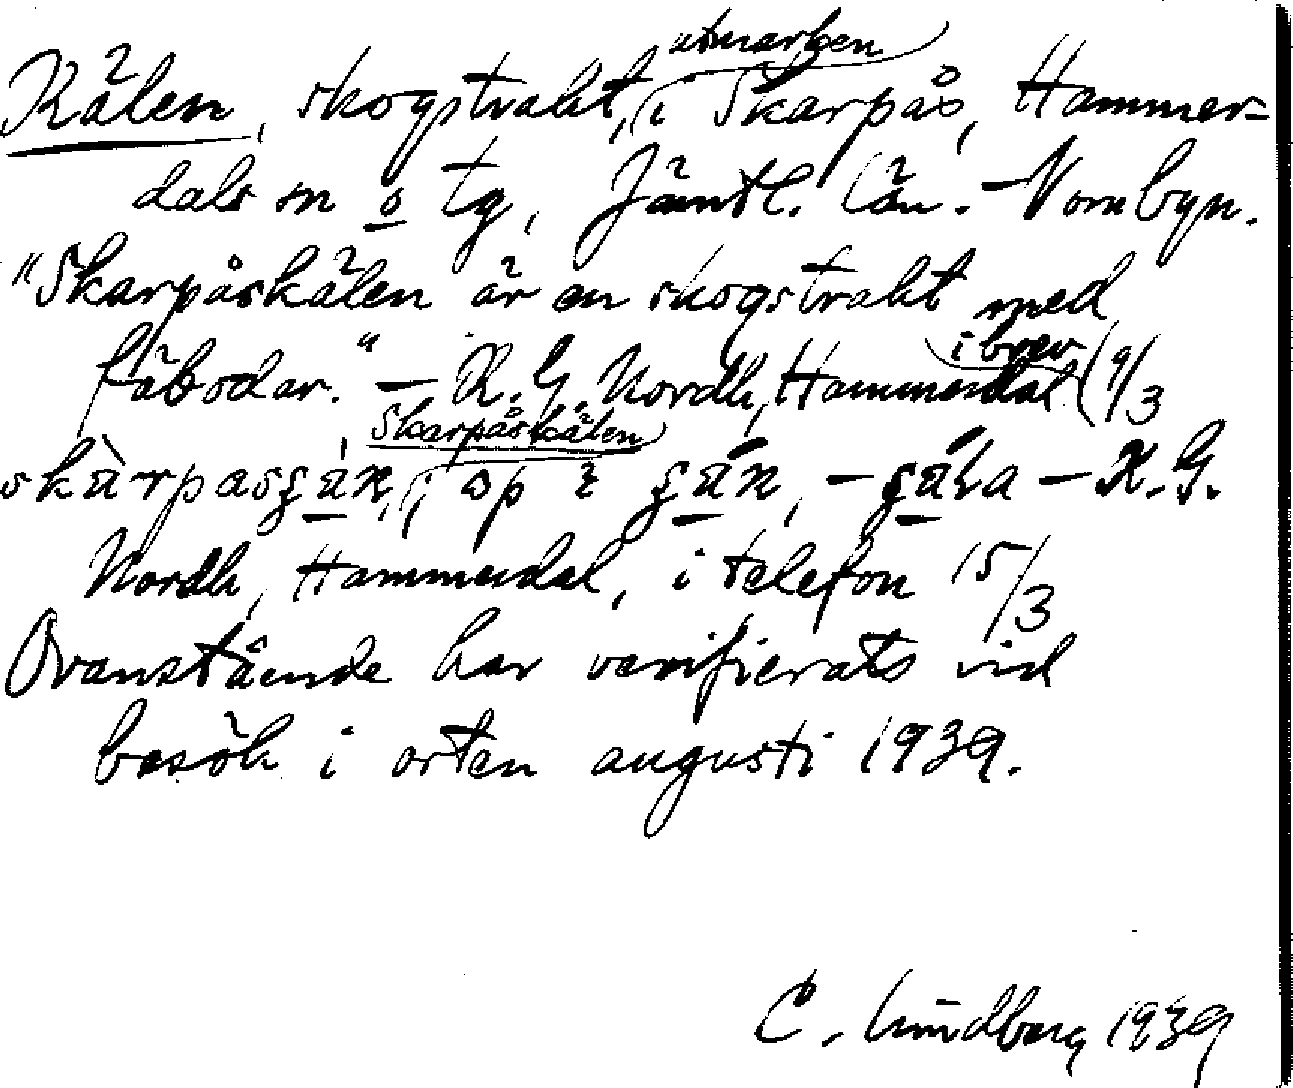 Kälen, skogstrakt, i utmarken Skarpås, Hammer-
dals sn o tg, Jämtl. län. - Norrabyn.
"Skarpåskälen är en skogstrakt med
fäbodar." - K. G. Nordh, Hammerdal i brev 9/3
Skarpåskälen, op
- K. G.
Nordh, Hammerdal, i telefon 15/3
Ovanstående har verifierats vid
besök i orten augusti 1939.
C. Lundberg 1939